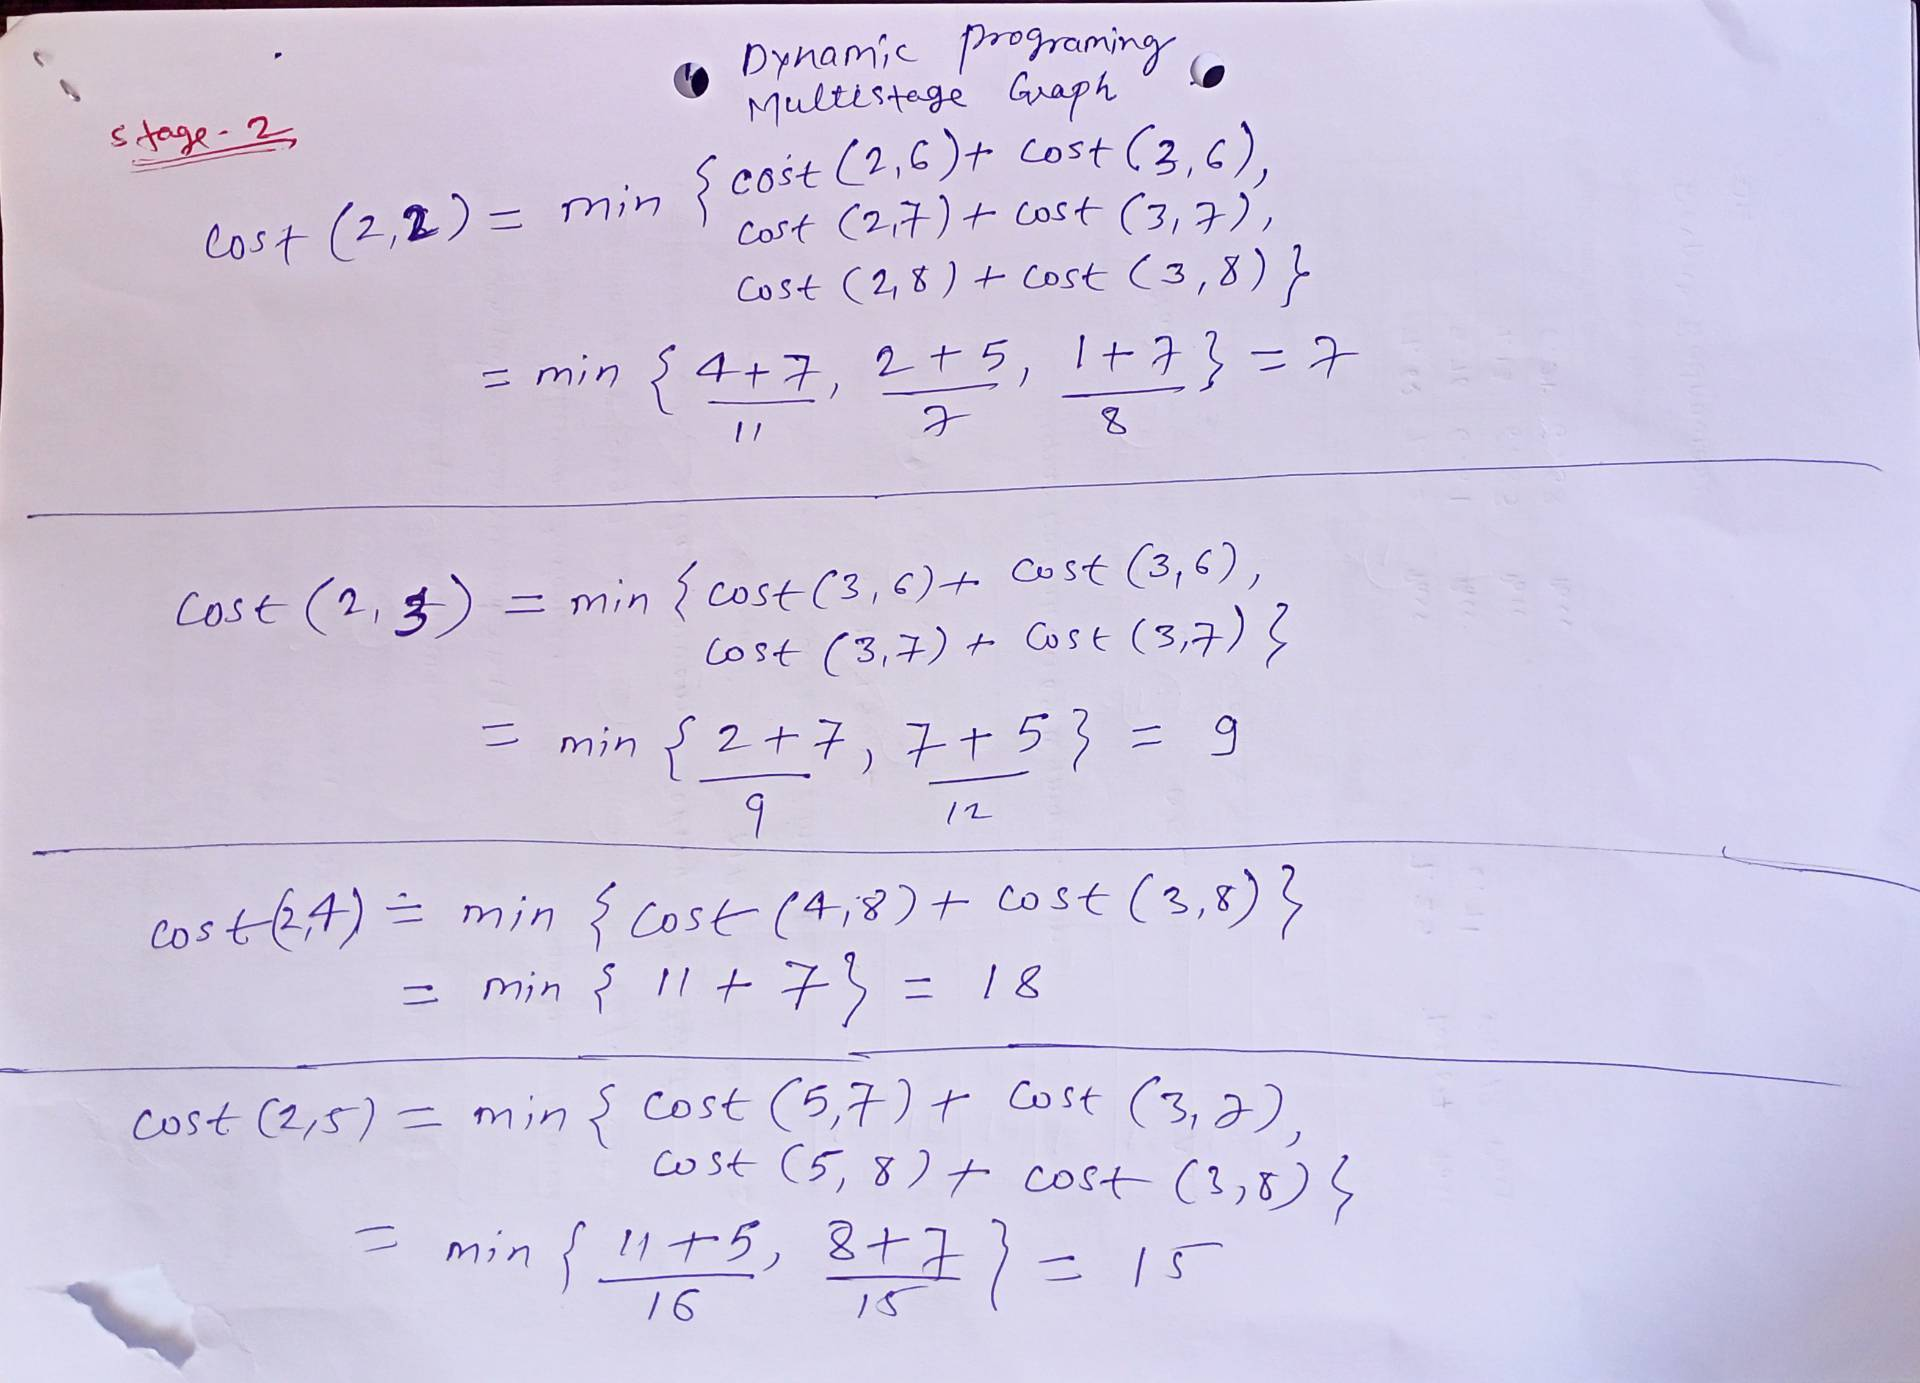 Dynamic programing
Multistage Graph
stage-2
cost (2,2) = min { cost (2,6) + cost (3,6),
cost (2,7) + cost (3,7),
cost (2,8) + cost (3,8) }
= min { 4+7, 2+5, 1+7 } = 7
11 7 8
cost (2,3) = min { cost (3,6) + cost (3,6),
cost (3,7) + cost (3,7) }
= min { 2+7, 7+5 } = 9
9 12
cost (2,4) = min { cost (4,8) + cost (3,8) }
= min { 11+7 } = 18
cost (2,5) = min { cost (5,7) + cost (3,7),
cost (5,8) + cost (3,8) }
= min { 11+5, 8+7 } = 15
16 15